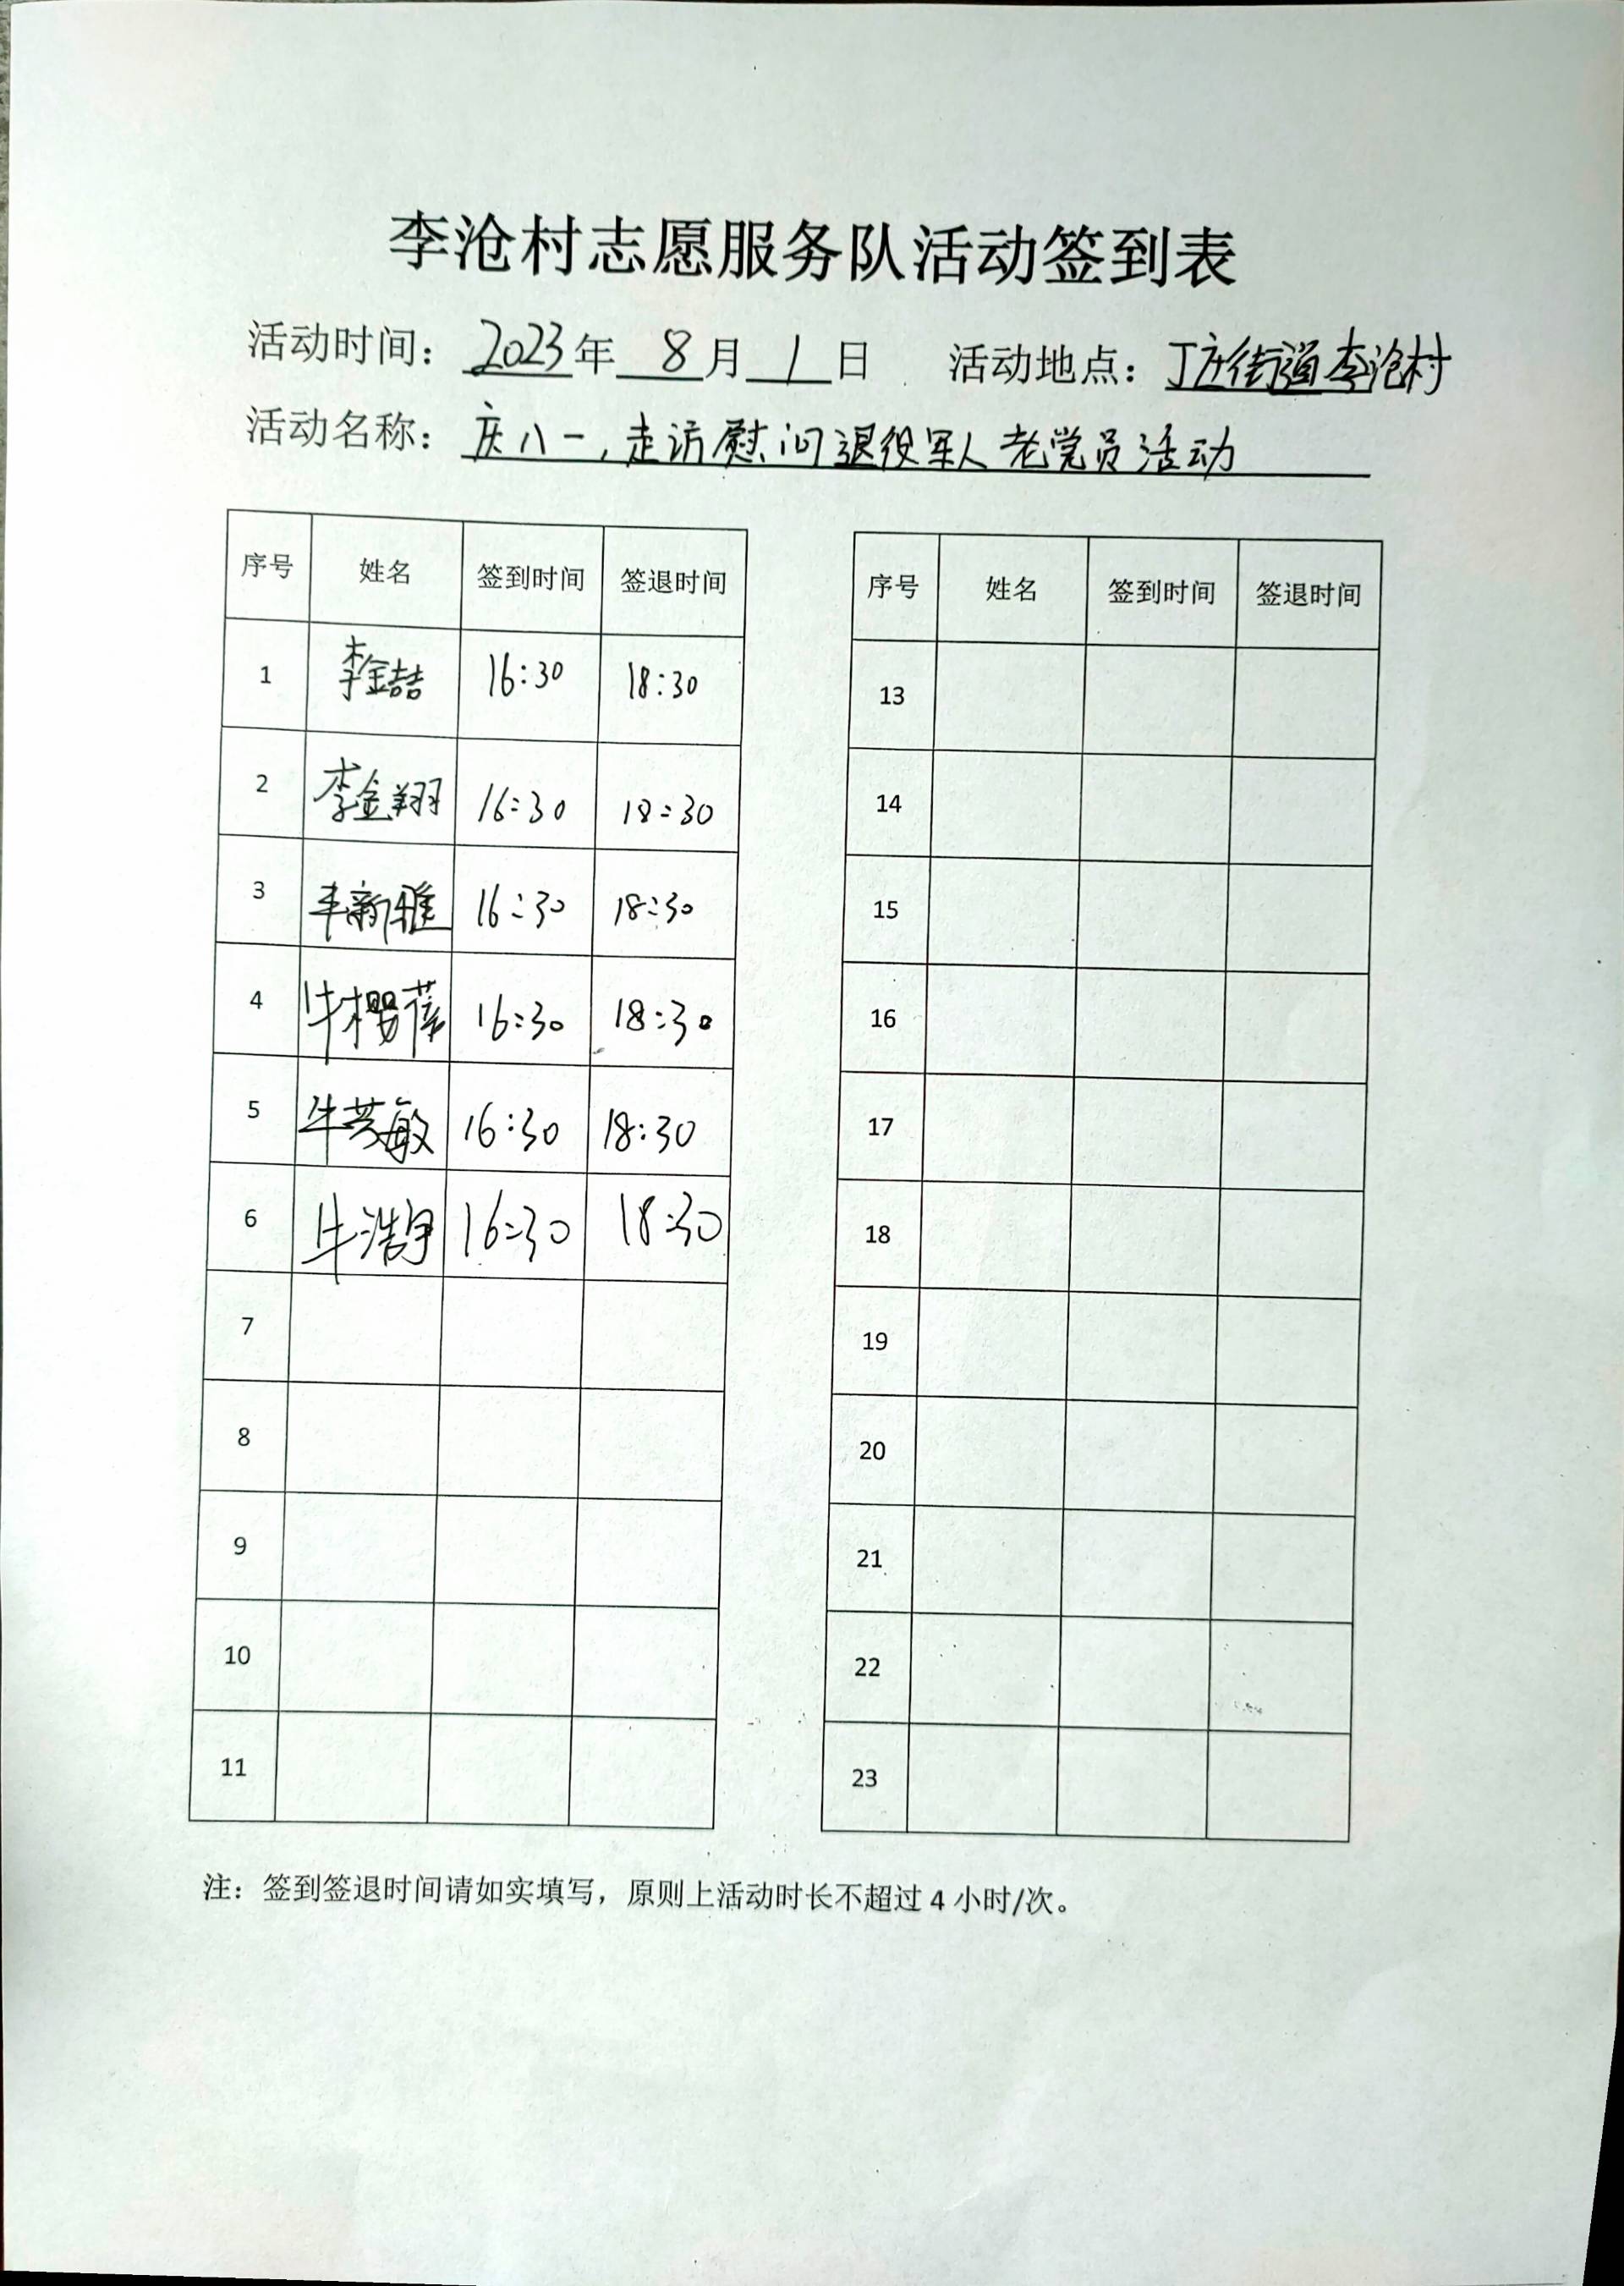 李沧村志愿服务队活动签到表
活动时间：2023年 8月 1日 活动地点：丁庄街道李沧村
活动名称：庆八一，走访慰问退役军人老党员活动
序号 姓名 签到时间 签退时间 序号 姓名 签到时间 签退时间
1 李金喆 16:30 18:30 13
2 李金翔 16:30 18:30 14
3 新雅 16:30 18:30 15
4 牛樱蓓 16:30 18:30 16
5 牛芸敏 16:30 18:30 17
6 牛浩宇 16:30 18:30 18
7 19
8 20
9 21
10 22
11 23
注：签到签退时间请如实填写，原则上活动时长不超过 4 小时/次。